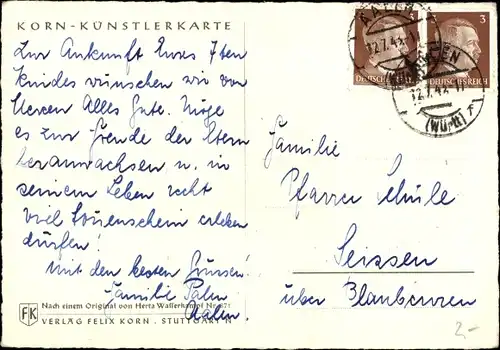 KORN-KÜNSTLERKARTE
Zur Ankunft Eures 7ten
Kindes wünschen wir von
Herzen Alles Gute. Möge
es zur Freude der Eltern
heranwachsen u. in
seinem Leben recht
viel Sonnenschein erleben
dürfen!
Mit den besten Grüssen!
Familie Palm
Aalen.
Nach einem Original von Herta Wasserkampf Nr. 671
FK
VERLAG FELIX KORN · STUTTGART N
AALEN
12.7.43
3
DEUTSCHES REICH
3
DEUTSCHES REICH
12.7.43
(WÜRTT)
Familie
Pfarrer Schüle
Seissen
über Blaubeuren
2,-